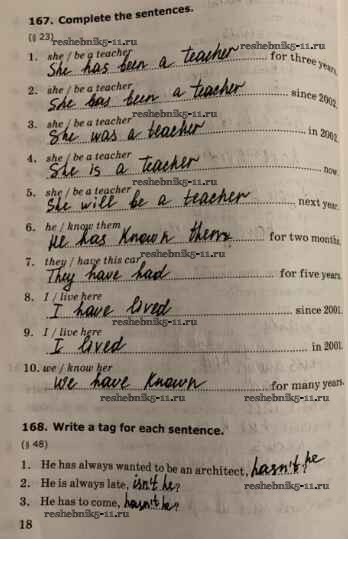 167. Complete the sentences.
(§ 23) reshebnik5-11.ru
1. she / be a teacher
She has been a teacher for three years.
2. she / be a teacher reshebnik5-11.ru
She has been a teacher since 2002.
reshebnik5-11.ru
3. she / be a teacher
She was a teacher in 2002.
reshebnik5-11.ru
4. she / be a teacher
She is a teacher now.
reshebnik5-11.ru
5. she / be a teacher
She will be a teacher next year.
6. he / know them
He has known them for two months.
reshebnik5-11.ru
7. they / have this car
They have had for five years.
8. I / live here
I have lived since 2001.
reshebnik5-11.ru
9. I / live here
I lived in 2001.
reshebnik5-11.ru
10. we / know her
We have known for many years.
reshebnik5-11.ru
168. Write a tag for each sentence.
(§ 48)
1. He has always wanted to be an architect, hasn't he?
2. He is always late, isn't he?
reshebnik5-11.ru
3. He has to come, hasn't he?
reshebnik5-11.ru
18